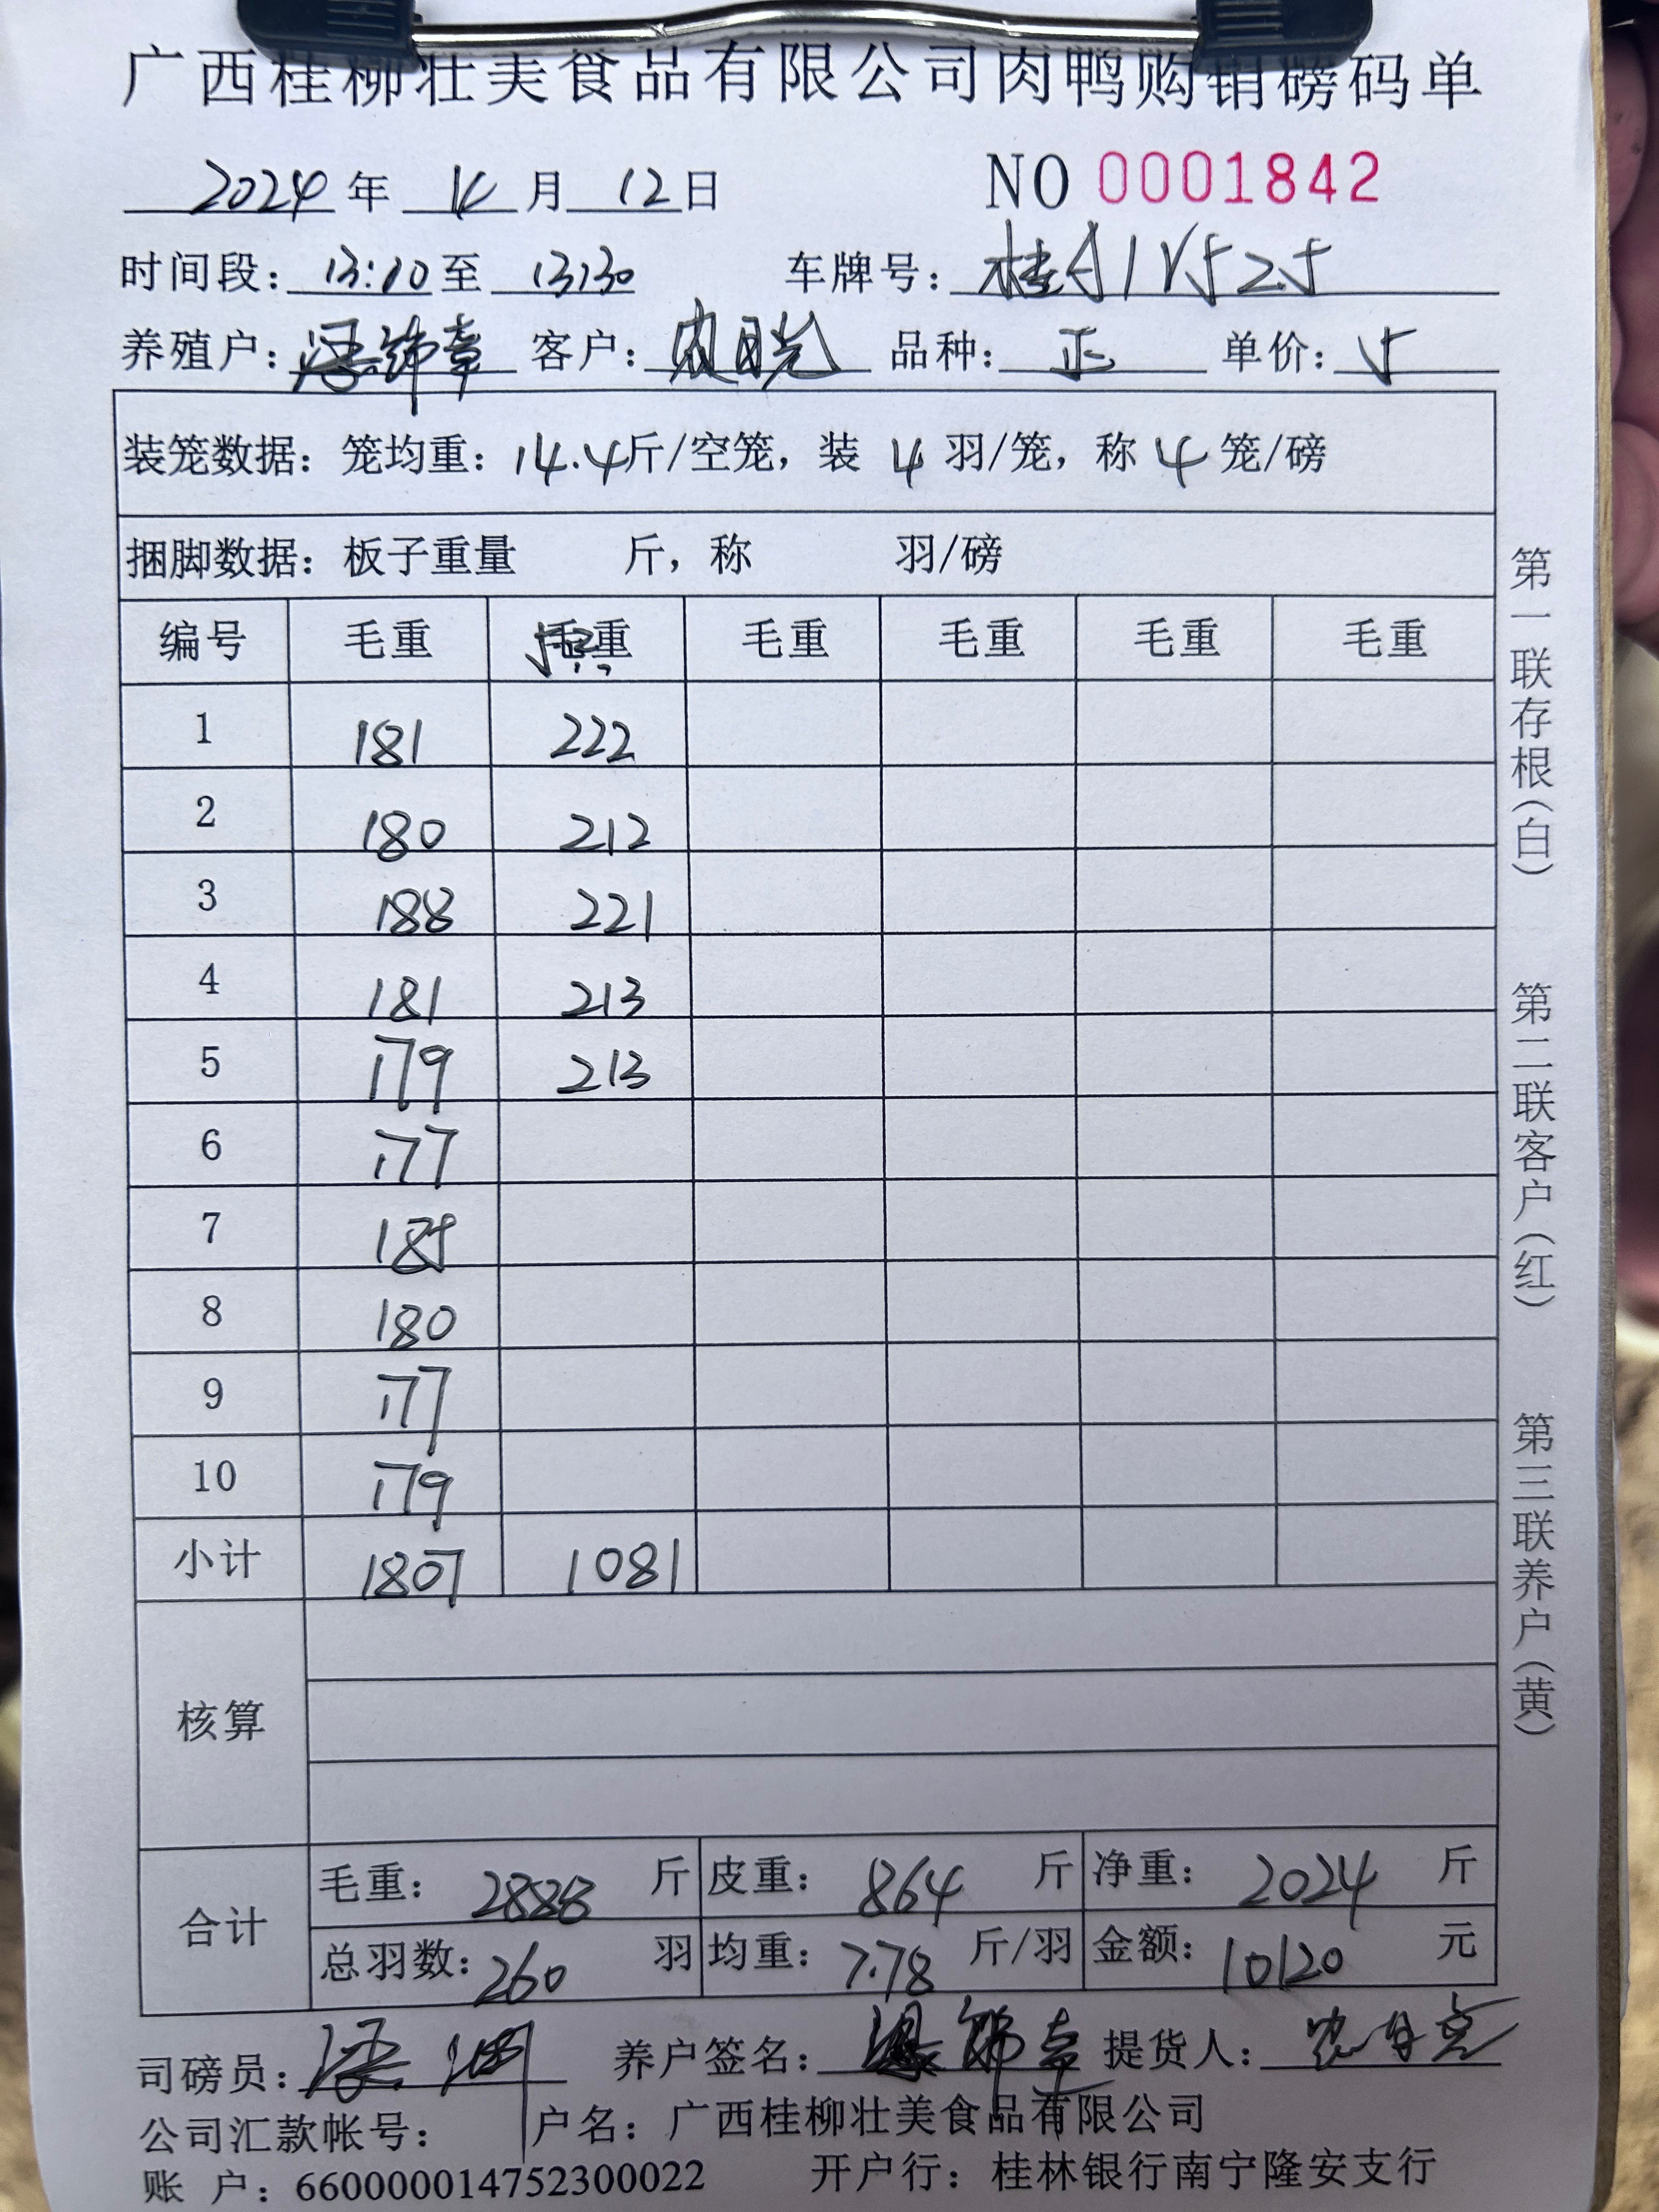 广西桂柳壮美食品有限公司肉鸭购销磅码单
2024年 月12日 NO 0001842
时间段：13:10至 13:30 车牌号：桂A1V525
养殖户： 客户： 品种：正 单价：5
装笼数据：笼均重：14.4斤/空笼，装 4 羽/笼，称 4 笼/磅
捆脚数据：板子重量 斤，称 羽/磅
编号 毛重 毛重 毛重 毛重 毛重 毛重
1 181 222
2 180 212
3 188 221
4 181 213
5 179 213
6 177
7 185
8 180
9 177
10 179
小计 1807 1081
核算
合计 毛重：2888 斤 皮重：864 斤 净重：2024 斤
总羽数：260 羽 均重：7.78 斤/羽 金额：10120 元
司磅员： 养户签名： 提货人：
公司汇款帐号： 户名：广西桂柳壮美食品有限公司
账 户：660000014752300022 开户行：桂林银行南宁隆安支行
第一联存根（白） 第二联客户（红） 第三联养户（黄）